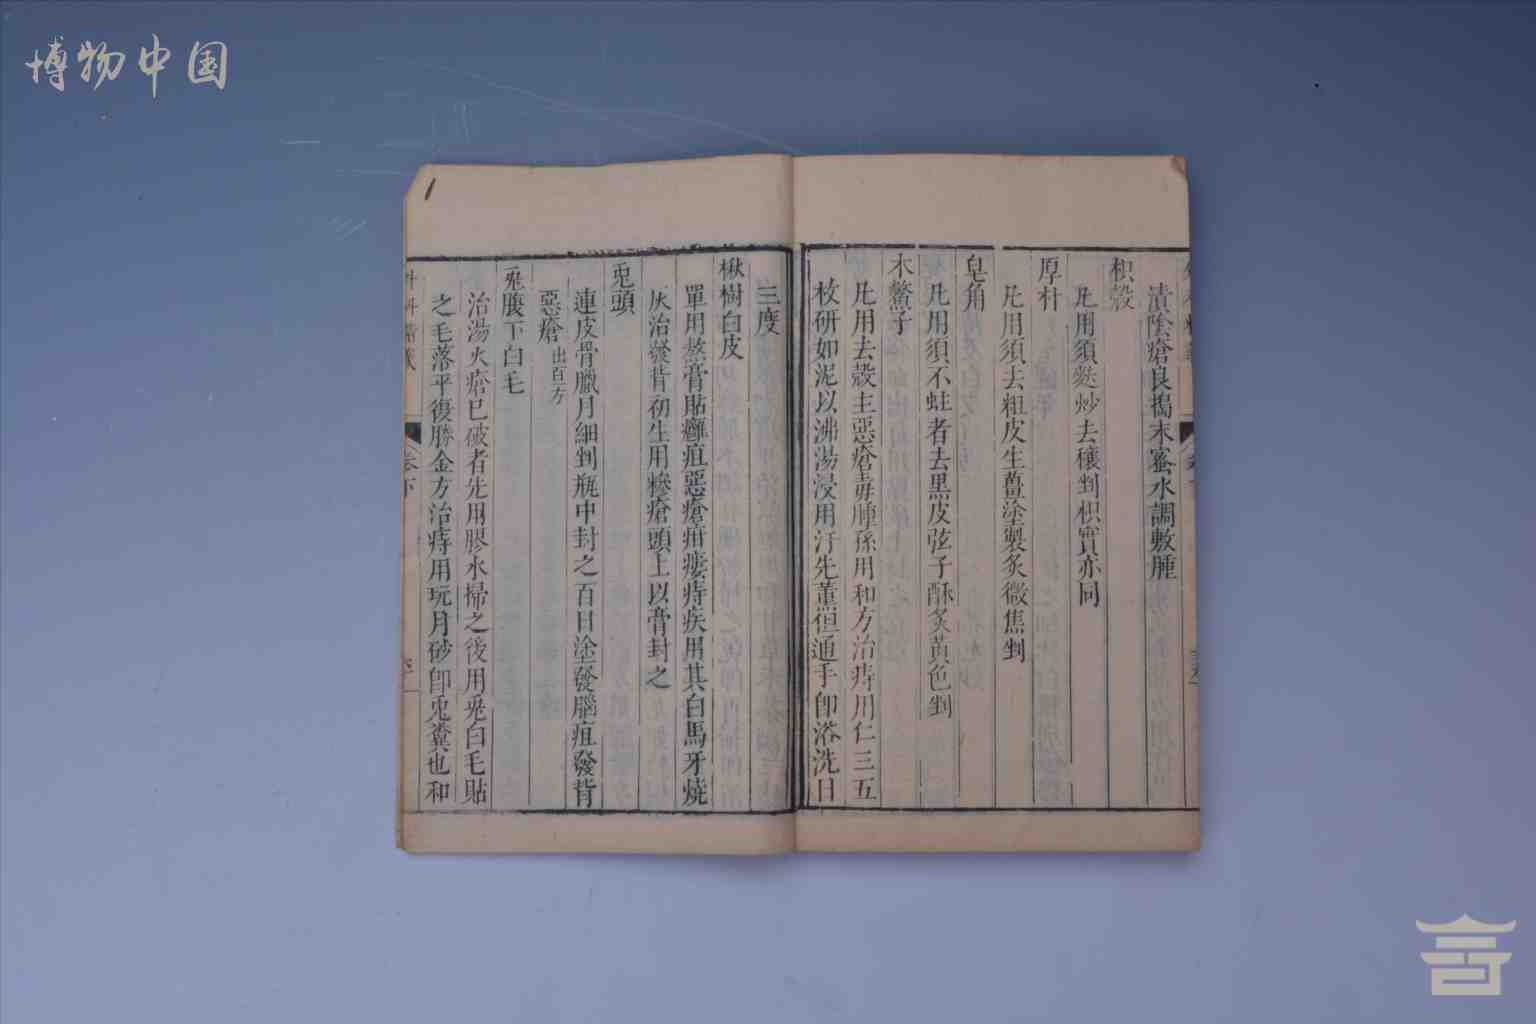 博物中国
潰陰瘡良搗末蜜水調敷腫
枳殼
凡用須麩炒去穰剉枳實亦同
厚朴
凡用須去粗皮生薑塗製炙微焦剉
皂角
凡用須不蛀者去黑皮弦子酥炙黃色剉
木鱉子
凡用去殼主惡瘡毒腫孫用和方治痔用仁三五
枚研如泥以沸湯浸用汙先薰但通手即浴洗日
三度
楸樹白皮
單用熬膏貼癰疽惡瘡疳瘻痔疾用其白馬牙燒
灰治發背初生用糝瘡頭上以膏封之
兎頭
連皮骨臘月細剉瓶中封之百日塗發腦疽發背
惡瘡出百方
兎腹下白毛
治湯火瘡已破者先用膠水掃之後用兎白毛貼
之毛落平復勝金方治痔用玩月砂卽兎糞也和
卷下